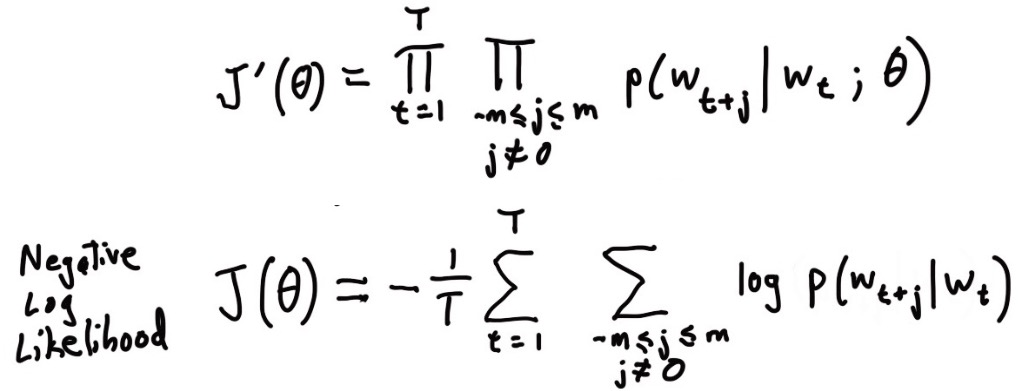 J'(θ) = ∏_{t=1}^{T} ∏_{-m≤j≤m, j≠0} p(w_{t+j} | w_t ; θ)
Negative
Log
Likelihood
J(θ) = - 1/T ∑_{t=1}^{T} ∑_{-m≤j≤m, j≠0} log p(w_{t+j} | w_t)